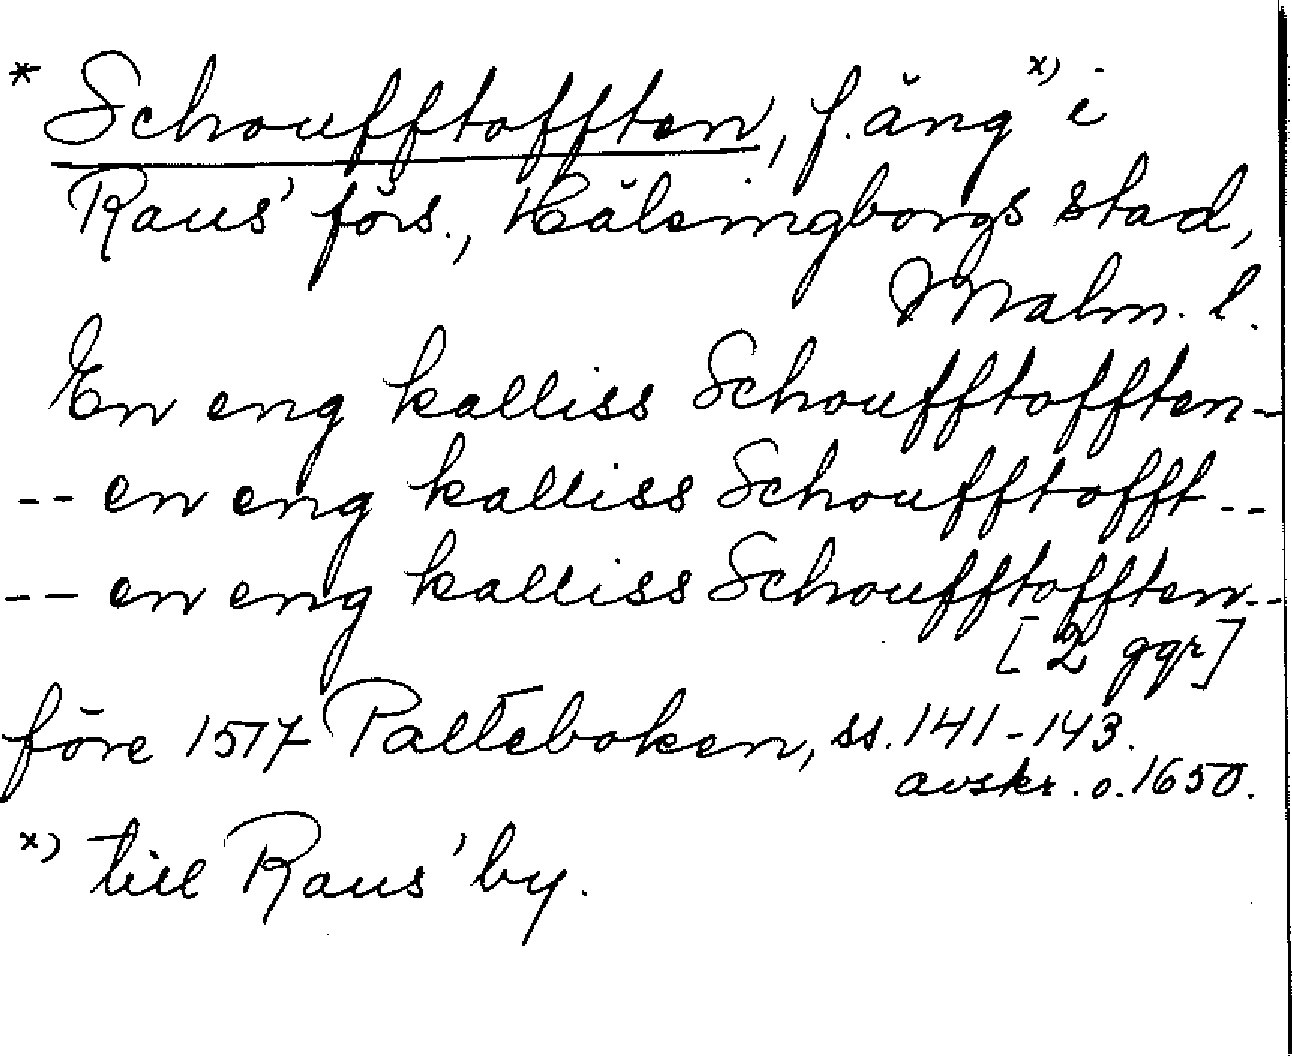 * Schoufftofften, f. äng x) i
Raus' förs., Hälsingborgs stad,
Malm. l.
En eng kalliss Schoufftofften-
-- en eng kalliss Schoufftofft --
-- en eng kalliss Schoufftofften--
[2 ggr]
före 1517 Palteboken, ss. 141-143.
avskr. o. 1650.
x) till Raus' by.